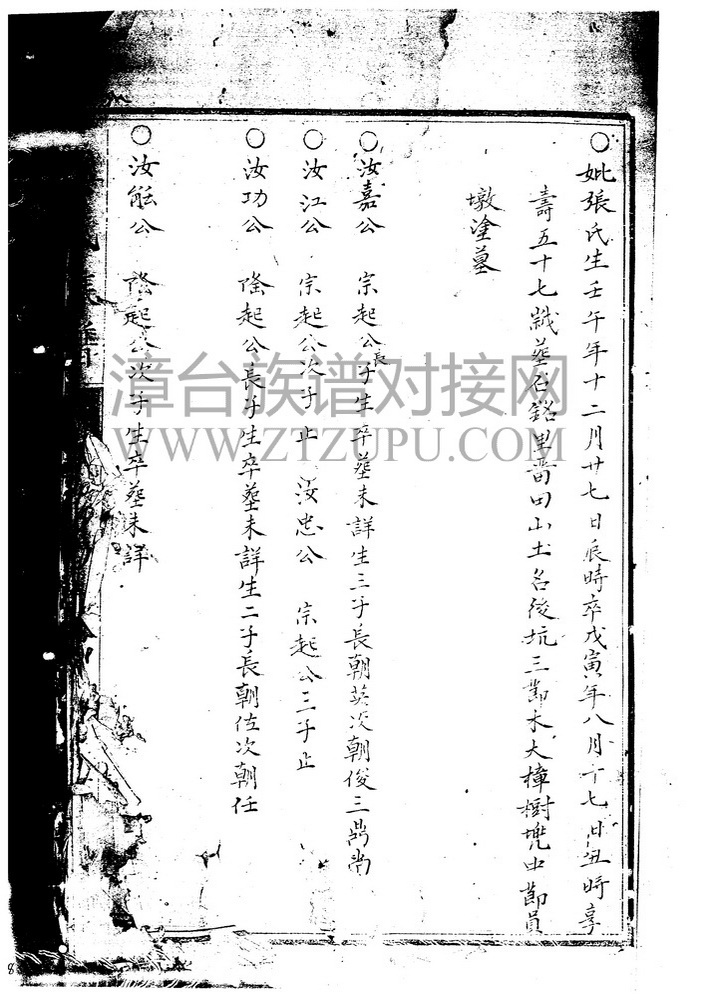 ○妣張氏生壬午年十二月廿七日辰時卒戊寅年八月十七日丑時享
壽五十七歲葬石銘里番田山土名後坑三節水大樟樹兜中節員
墩塗墓
○汝嘉公 宗起公長子生卒葬未詳生三子長朝英次朝俊三鼎尚
○汝江公 宗起公次子止 汝忠公 宗起公三子止
○汝功公 隆起公長子生卒葬未詳生二子長朝佐次朝任
○汝能公 隆起公次子生卒葬未詳
漳台族谱对接网
WWW.ZTZUPU.COM
8